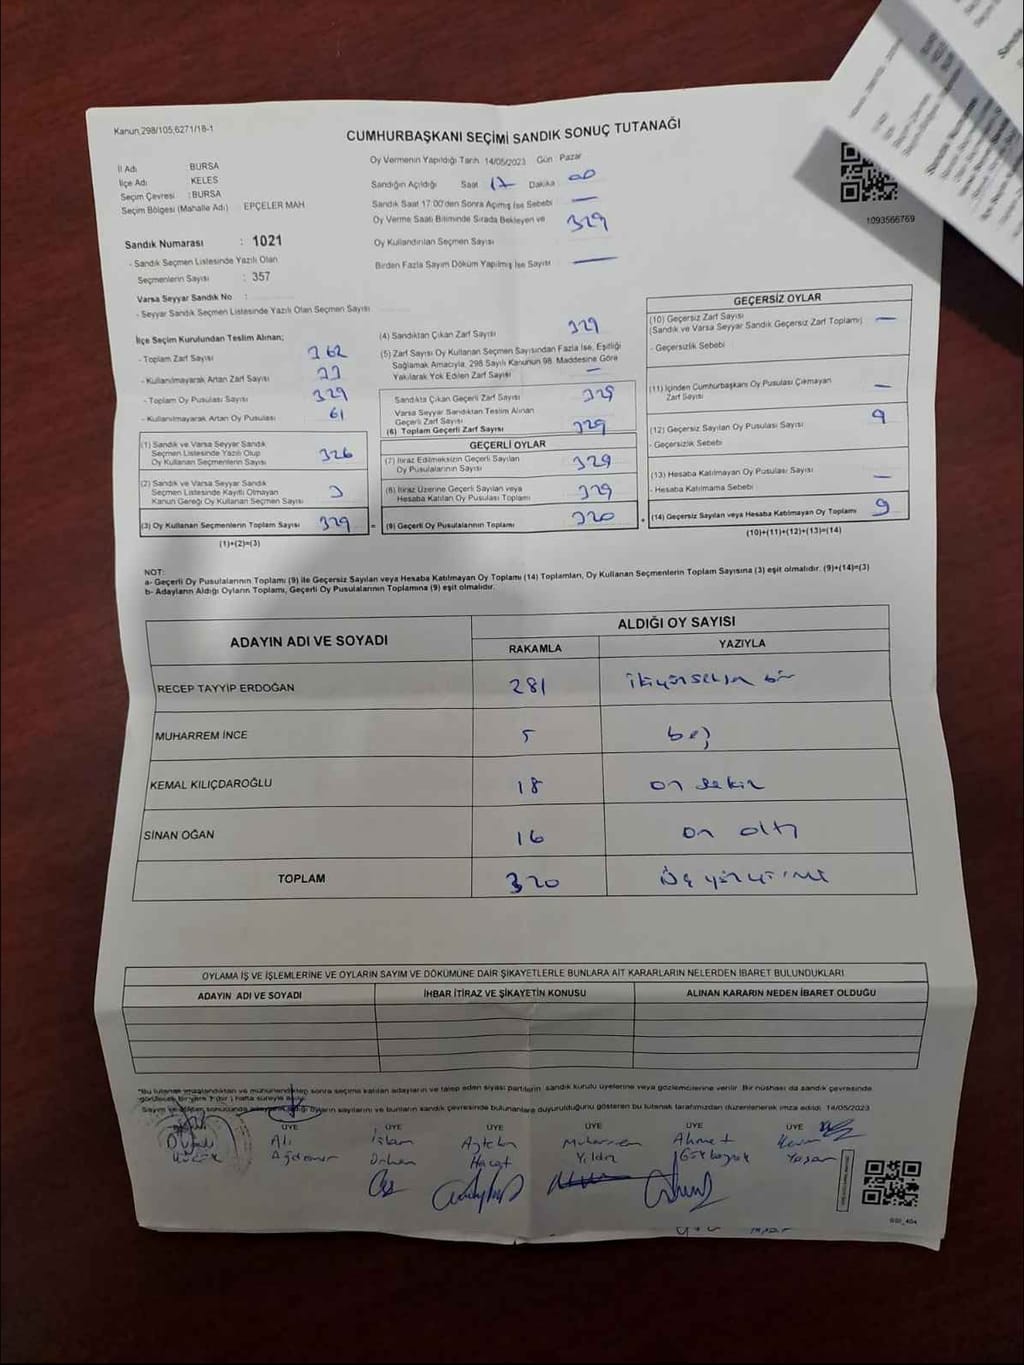 Kanun,298/105,6271/18-1
CUMHURBAŞKANI SEÇİMİ SANDIK SONUÇ TUTANAĞI
İl Adı BURSA
İlçe Adı KELES
Seçim Çevresi : BURSA
Seçim Bölgesi (Mahalle Adı) EPÇELER MAH
Sandık Numarası : 1021
- Sandık Seçmen Listesinde Yazılı Olan
Seçmenlerin Sayısı : 357
Varsa Seyyar Sandık No :
- Seyyar Sandık Seçmen Listesinde Yazılı Olan Seçmen Sayısı
Oy Vermenin Yapıldığı Tarih 14/05/2023 Gün Pazar
Sandığın Açıldığı Saat 17 Dakika 00
Sandık Saat 17:00'den Sonra Açılmış İse Sebebi —
Oy Verme Saati Bitiminde Sırada Bekleyen ve 329
Oy Kullandırılan Seçmen Sayısı
Birden Fazla Sayım Döküm Yapılmış İse Sayısı —
1093566769
İlçe Seçim Kurulundan Teslim Alınan;
- Toplam Zarf Sayısı 362
- Kullanılmayarak Artan Zarf Sayısı
- Toplam Oy Pusulası Sayısı 329
- Kullanılmayarak Artan Oy Pusulası 61
(1) Sandık ve Varsa Seyyar Sandık
Seçmen Listesinde Yazılı Olup
Oy Kullanan Seçmenlerin Sayısı 326
(2) Sandık ve Varsa Seyyar Sandık
Seçmen Listesinde Kayıtlı Olmayan
Kanun Gereği Oy Kullanan Seçmen Sayısı 3
(3) Oy Kullanan Seçmenlerin Toplam Sayısı 329 =
(1)+(2)=(3)
(4) Sandıktan Çıkan Zarf Sayısı 329
(5) Zarf Sayısı Oy Kullanan Seçmen Sayısından Fazla İse, Eşitliği
Sağlamak Amacıyla, 298 Sayılı Kanunun 98. Maddesine Göre
Yakılarak Yok Edilen Zarf Sayısı —
Sandıkta Çıkan Geçerli Zarf Sayısı 329
Varsa Seyyar Sandıktan Teslim Alınan
Geçerli Zarf Sayısı
(6) Toplam Geçerli Zarf Sayısı 329
GEÇERLİ OYLAR
(7) İtiraz Edilmeksizin Geçerli Sayılan
Oy Pusulalarının Sayısı 329
(8) İtiraz Üzerine Geçerli Sayılan veya
Hesaba Katılan Oy Pusulası Toplamı 329
(9) Geçerli Oy Pusulalarının Toplamı 320 +
GEÇERSİZ OYLAR
(10) Geçersiz Zarf Sayısı
(Sandık ve Varsa Seyyar Sandık Geçersiz Zarf Toplamı) —
- Geçersizlik Sebebi
(11) İçinden Cumhurbaşkanı Oy Pusulası Çıkmayan
Zarf Sayısı —
(12) Geçersiz Sayılan Oy Pusulası Sayısı 9
- Geçersizlik Sebebi
(13) Hesaba Katılmayan Oy Pusulası Sayısı —
- Hesaba Katılmama Sebebi
(14) Geçersiz Sayılan veya Hesaba Katılmayan Oy Toplamı 9
(10)+(11)+(12)+(13)=(14)
NOT:
a- Geçerli Oy Pusulalarının Toplamı (9) ile Geçersiz Sayılan veya Hesaba Katılmayan Oy Toplamı (14) Toplamları, Oy Kullanan Seçmenlerin Toplam Sayısına (3) eşit olmalıdır. (9)+(14)=(3)
b- Adayların Aldığı Oyların Toplamı, Geçerli Oy Pusulalarının Toplamına (9) eşit olmalıdır.
ADAYIN ADI VE SOYADI ALDIĞI OY SAYISI
RAKAMLA YAZIYLA
RECEP TAYYİP ERDOĞAN 281 ikiyüzseksen bir
MUHARREM İNCE 5 beş
KEMAL KILIÇDAROĞLU 18 on sekiz
SİNAN OĞAN 16 on altı
TOPLAM 320 Üç yüz yirmi
OYLAMA İŞ VE İŞLEMLERİNE VE OYLARIN SAYIM VE DÖKÜMÜNE DAİR ŞİKAYETLERLE BUNLARA AİT KARARLARIN NELERDEN İBARET BULUNDUKLARI
ADAYIN ADI VE SOYADI İHBAR İTİRAZ VE ŞİKAYETİN KONUSU ALINAN KARARIN NEDEN İBARET OLDUĞU
"Bu tutanak imzalandıktan ve mühürlendikten sonra seçime katılan adayların ve talep eden siyasi partilerin sandık kurulu üyelerine veya gözlemcilerine verilir. Bir nüshası da sandık çevresinde
görülecek bir yere 1 (bir) hafta süreyle asılır.
oyların sayılarını ve bunların sandık çevresinde bulunanlara duyurulduğunu gösteren bu tutanak tarafımızdan düzenlenerek imza edildi. 14/05/2023
ÜYE ÜYE ÜYE ÜYE ÜYE ÜYE
Ali İslam Aytekin Muharrem Ahmet
Orhan Hacat Yıldız Gökbayrak Yaşar